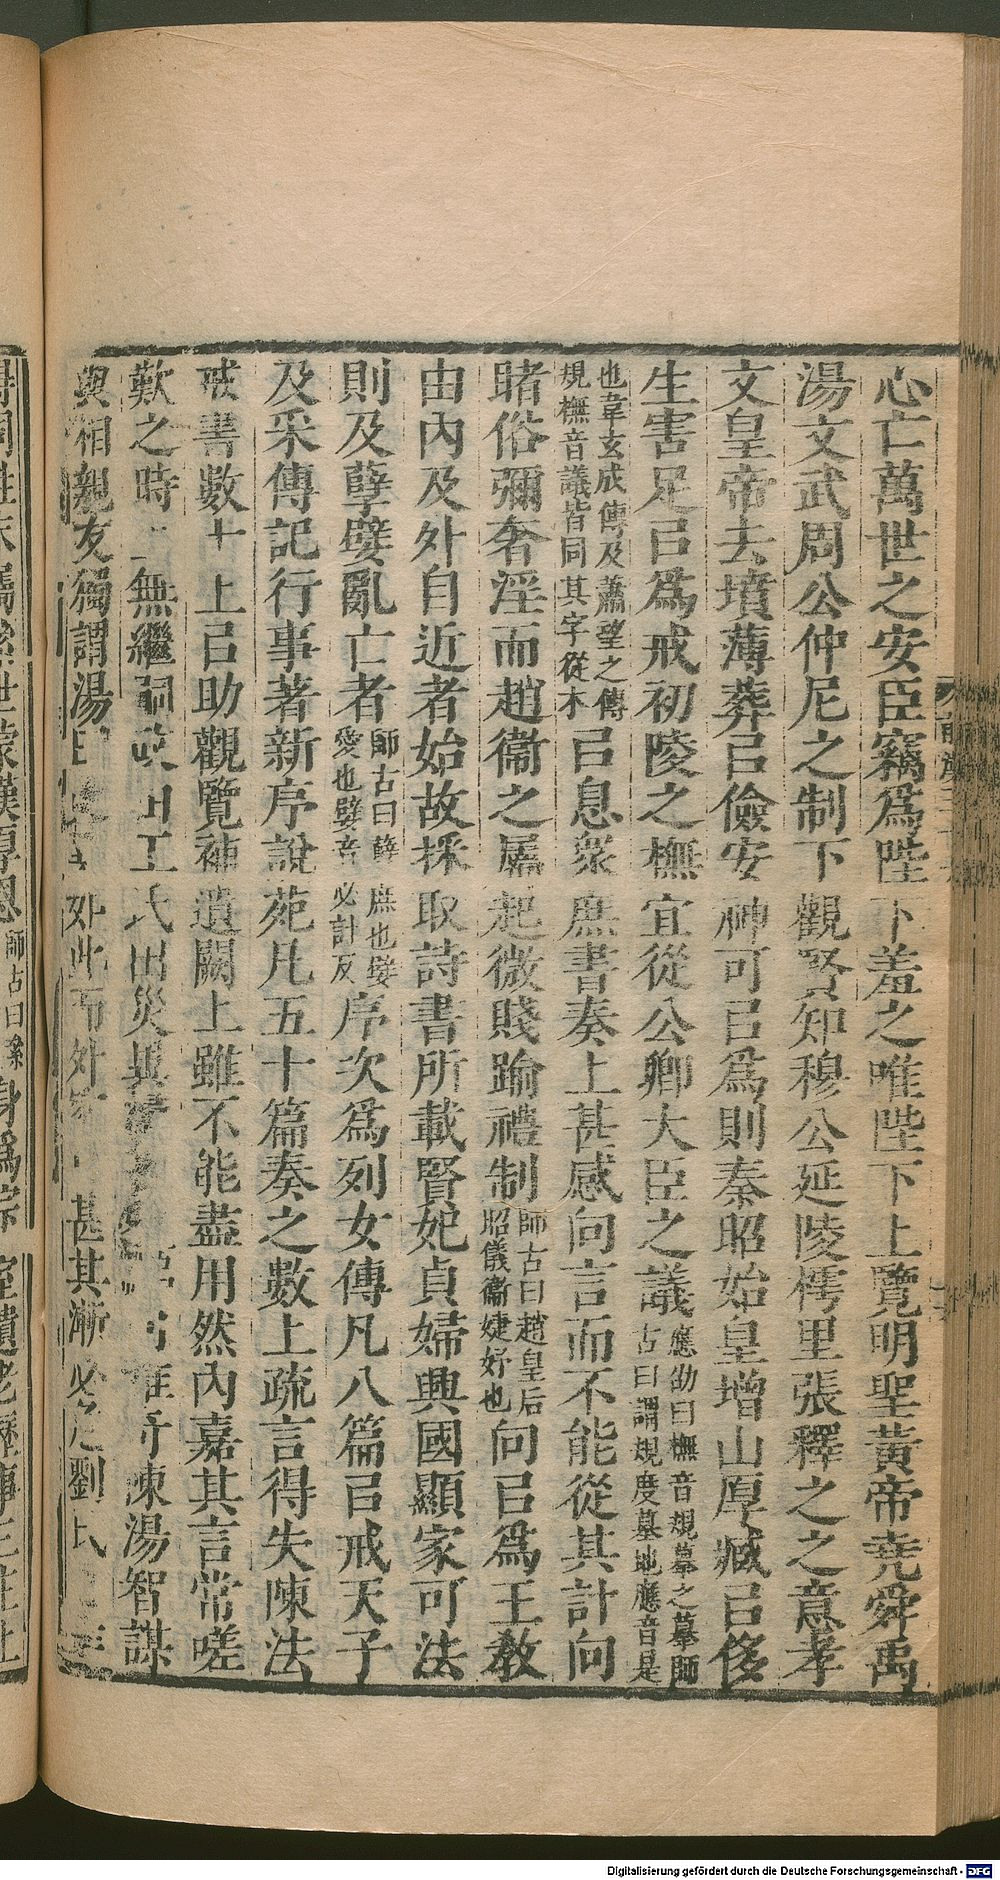 心亡萬世之安臣竊爲陛下羞之唯陛下上覽明聖黃帝堯舜禹
湯文武周公仲尼之制下觀賢知穆公延陵樗里張釋之之意孝
文皇帝去墳薄葬㠯儉安神可㠯爲則秦昭始皇增山厚臧㠯侈
生害足㠯爲戒初陵之橅宜從公卿大臣之議應劭曰橅音規摹之摹師
古曰謂規度墓地應音是
也韋玄成傳及蕭望之傳
規橅音議皆同其字從木㠯息衆庶書奏上甚感向言而不能從其計向
睹俗彌奢淫而趙衞之屬起微賤踰禮制師古曰趙皇后
昭儀衞婕妤也向㠯爲王敎
由內及外自近者始故採取詩書所載賢妃貞婦興國顯家可法
則及孽嬖亂亡者師古曰孽庶也嬖
愛也嬖音必計反序次爲列女傳凡八篇㠯戒天子
及采傳記行事著新序說苑凡五十篇奏之數上疏言得失陳法
戒書數十上㠯助觀覽補遺闕上雖不能盡用然內嘉其言常嗟
歎之時上無繼嗣政由王氏出災異陳湯智謀
與相親友獨謂湯曰如此而外家甚其漸必危劉氏
師古曰
身爲宗
Digitalisierung gefördert durch die Deutsche Forschungsgemeinschaft - DFG